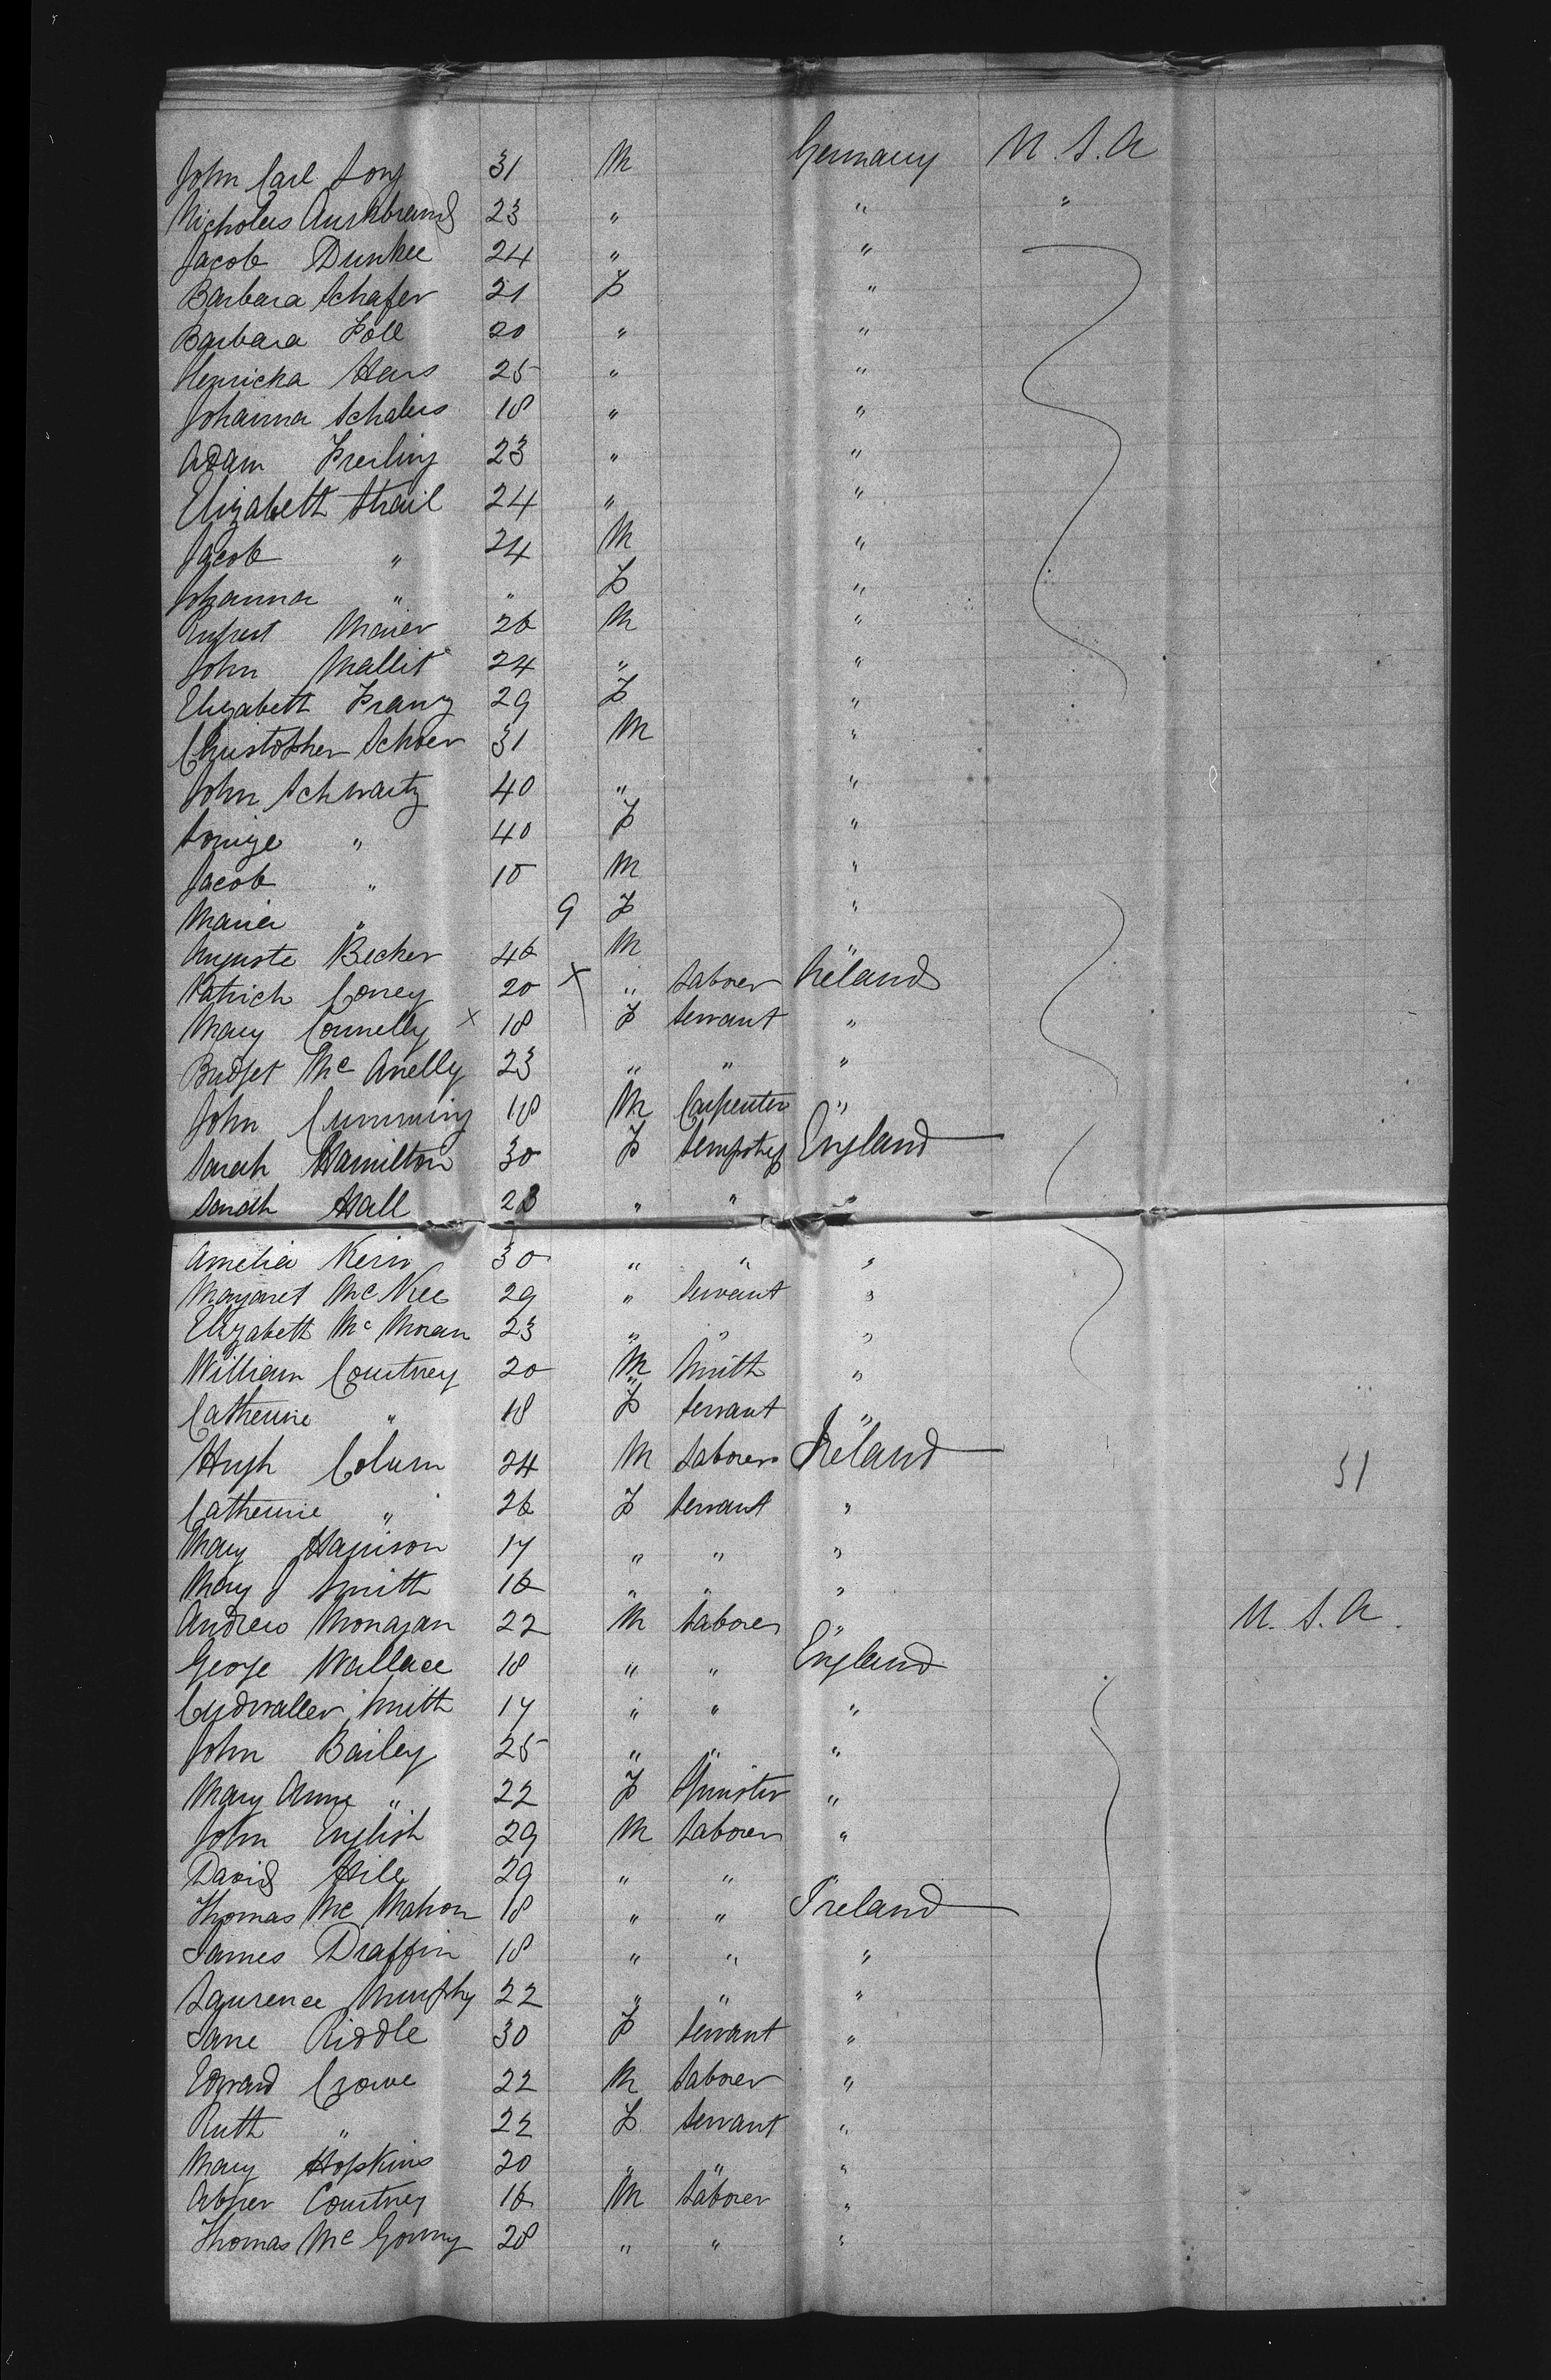 John Carl Long 31 M Germany U.S.A
Nicholas Aushbrand 23 " " "
Jacob Dunkee 24 " "
Barbara Schafer 21 F "
Barbara Foll 20 " "
Henricka Hars 25 " "
Johanna Schalus 18 " "
Adam Freiling 23 " "
Elizabeth Strail 24 " "
Jacob " 24 M "
Johanna " " F "
Rupert Maier 26 M "
John Mallit 24 " "
Elizabeth Franz 29 F "
Christopher Schoer 31 M "
John Schwartz 40 " "
Louize " 40 F "
Jacob " 15 M "
Maria " 9 F "
Auguste Becker 46 M "
Patrick Coney 20 X " Laborer Ireland
Mary Connelly X 18 F Servant "
Bridget Mc Anelly 23 " " "
John Cumming 18 M Carpenter "
Sarah Hamilton 30 F England
Sarah Hall 23 " " "
Amelia Kerin 30 " " "
Margaret McKee 29 " Servant "
Elizabeth Mc Moran 23 " " "
William Courtney 20 M Smith "
Catherine " 18 F Servant "
Hugh Colum 24 M Laborer Ireland 51
Catherine " 26 F Servant "
Mary Harrison 17 " " "
Mary J Smith 16 " " "
Andrew Monagan 22 M Laborer " U.S.A.
George Wallace 18 " " England
Cudwaller Smith 17 " " "
John Bailey 25 " " "
Mary Anne " 22 F Spinster "
John English 29 M Laborer "
David Hill 29 " " "
Thomas Mc Mahon 18 " " Ireland
James Draffin 18 " " "
Laurence Murphy 22 " " "
Jane Riddle 30 F Servant "
Edward Crowe 22 M Laborer "
Ruth " 22 F Servant "
Mary Hopkins 20 " " "
Abner Courtney 16 M Laborer "
Thomas Mc Gonny 28 " " "